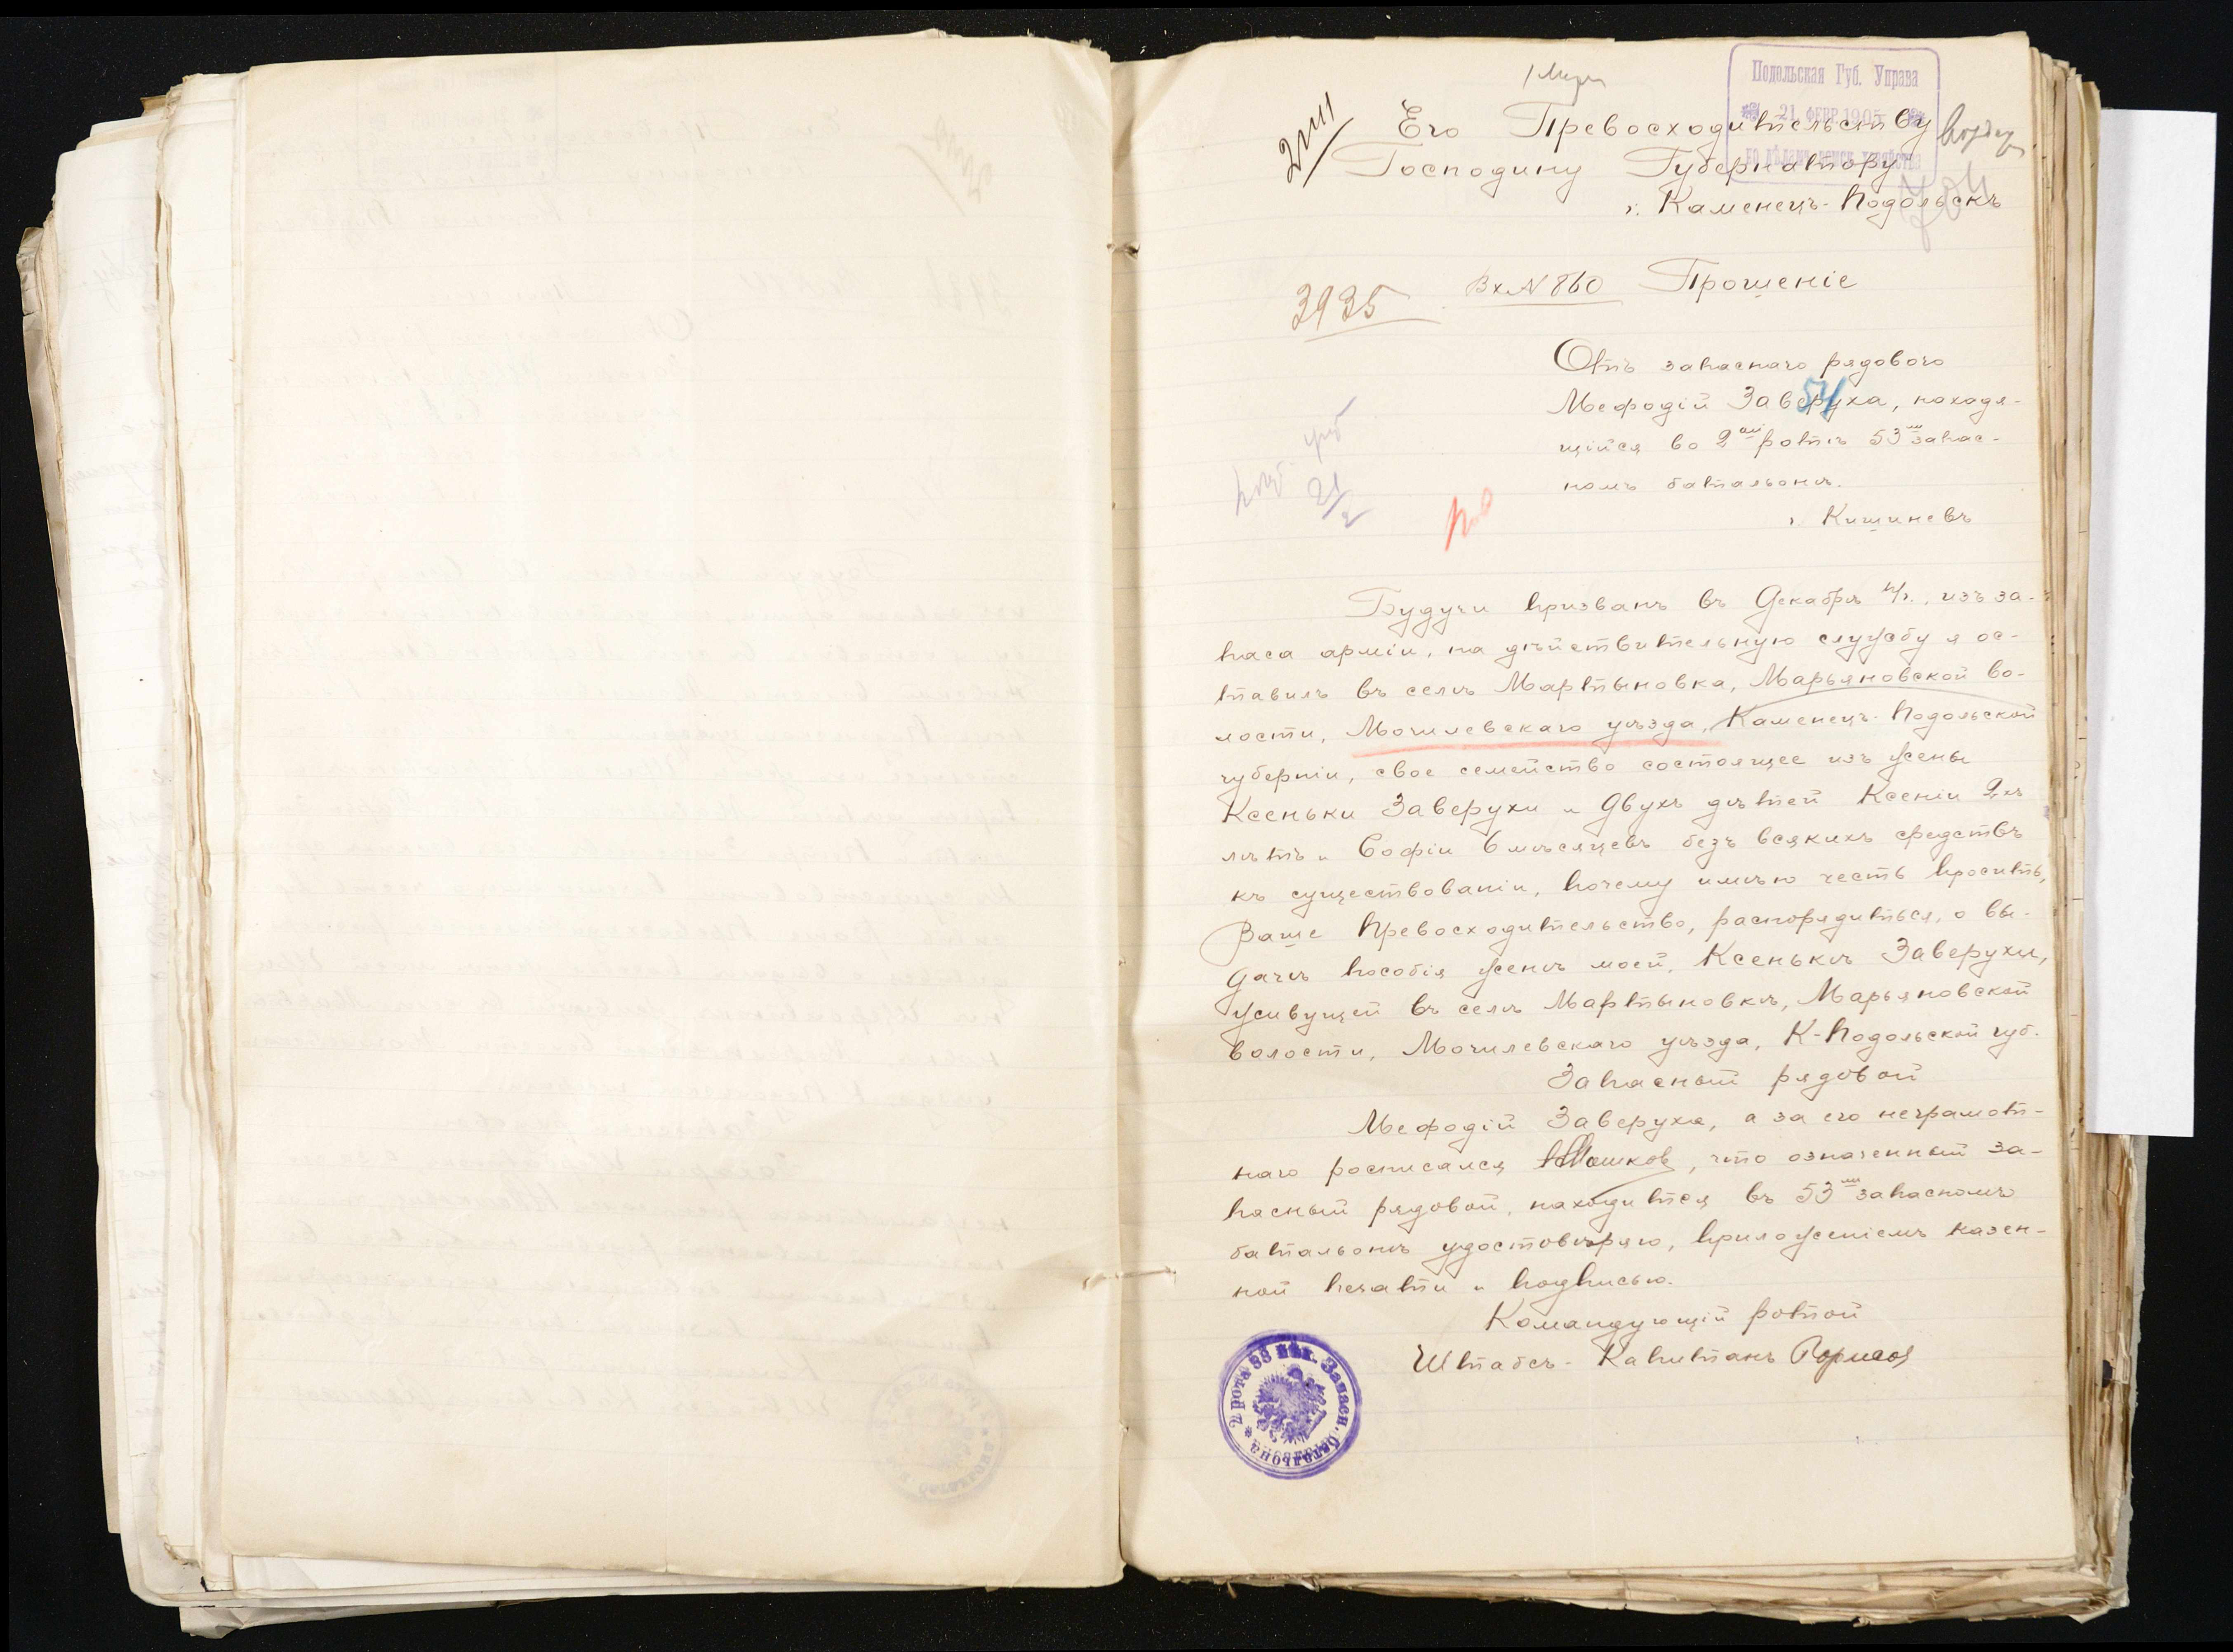 Подольская Губ. Управа
21 ФЕВР. 1905
Его Превосходительству
Господину Губернатору
г. Каменецъ-Подольскъ
704
3935
Вх. № 860 Прошеніе
Отъ запаснаго рядового
Мефодій Заверуха, находя-
щійся во 2ой ротѣ 53м запас-
номъ баталіонѣ.
г. Кишиневъ
54
21/2
Будучи призванъ въ Декабрѣ п/г., изъ за-
паса арміи, на дѣйствительную службу я ос-
тавилъ въ селѣ Мартыновка, Марьяновской во-
лости, Могилевскаго уѣзда, Каменецъ-Подольской
губерніи, свое семейство состоящее изъ жены
Ксеньки Заверухи и двухъ дѣтей Ксеніи 2хъ
лѣтъ и Софіи 6 мѣсяцевъ безъ всякихъ средствъ
къ существованіи, почему имѣю честь просить,
Ваше Превосходительство, распорядиться, о вы-
дачѣ пособія женѣ моей, Ксенькѣ Заверухи,
живущей въ селѣ Мартыновкѣ, Марьяновской
волости, Могилевскаго уѣзда, К-Подольской губ.
Запасный рядовой
Мефодій Заверуха, а за его неграмот-
наго росписался, что означенный за-
пасный рядовой, находится въ 53м запасномъ
баталіонѣ удостовѣряю, приложеніемъ казен-
ной печати и подписью.
Командующій ротой
Штабсъ-Капитанъ
2 рота 53 пѣх. Запасн. баталіона